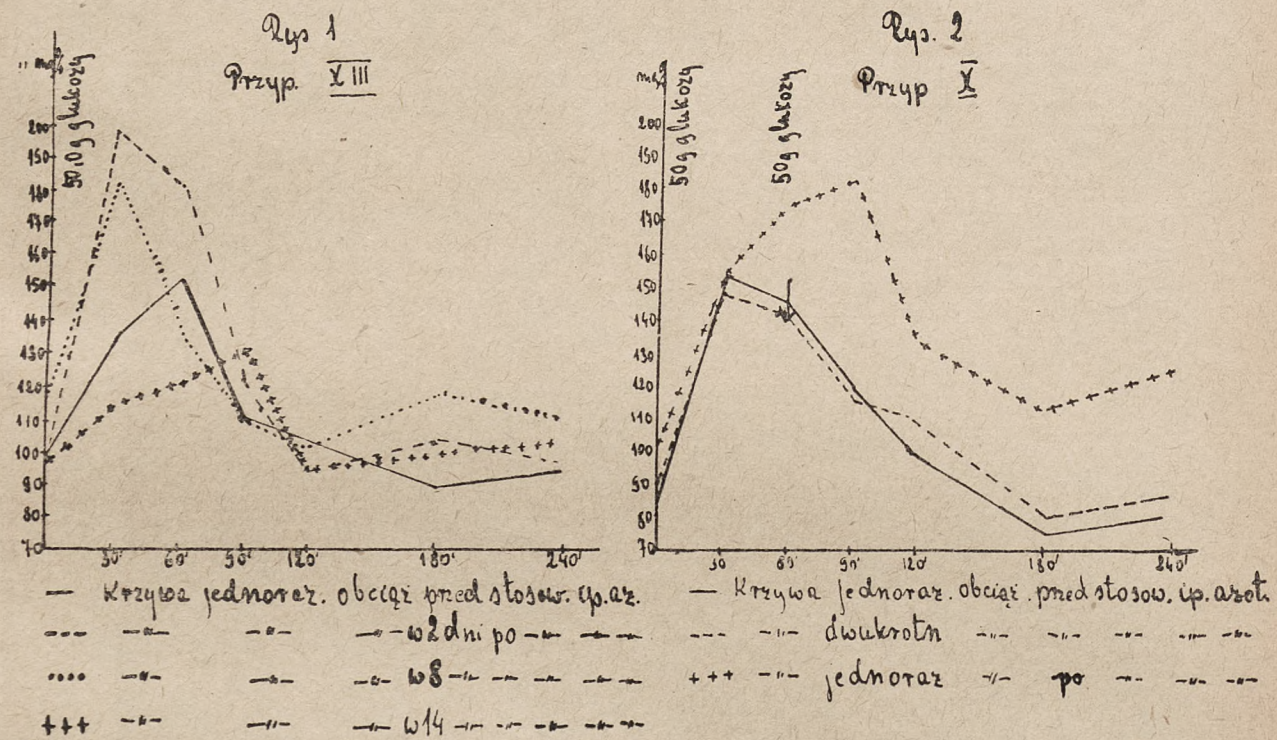 Rys 1
Przyp. XIII
mg%
50.0g glukozy
200
190
180
170
160
150
140
130
120
110
100
90
80
70
30' 60' 90' 120' 180' 240'
— Krzywa jednoraz. obciąż przed stosow. ip. az.
--- -"- -"- -"- w 2 dni po -"- -"- -"-
.... -"- -"- -"- w 8 -"- -"- -"- -"-
+++ -"- -"- -"- w 14 -"- -"- -"- -"-
Rys. 2
Przyp X
mg%
50g glukozy
50g glukozy
200
190
180
170
160
150
140
130
120
110
100
90
80
70
30' 60' 90' 120' 180' 240'
— Krzywa jednoraz. obciąż. przed stosow. ip. azot.
--- -"- dwukrotn -"- -"- -"- -"- -"-
+++ -"- jednoraz -"- po -"- -"- -"-